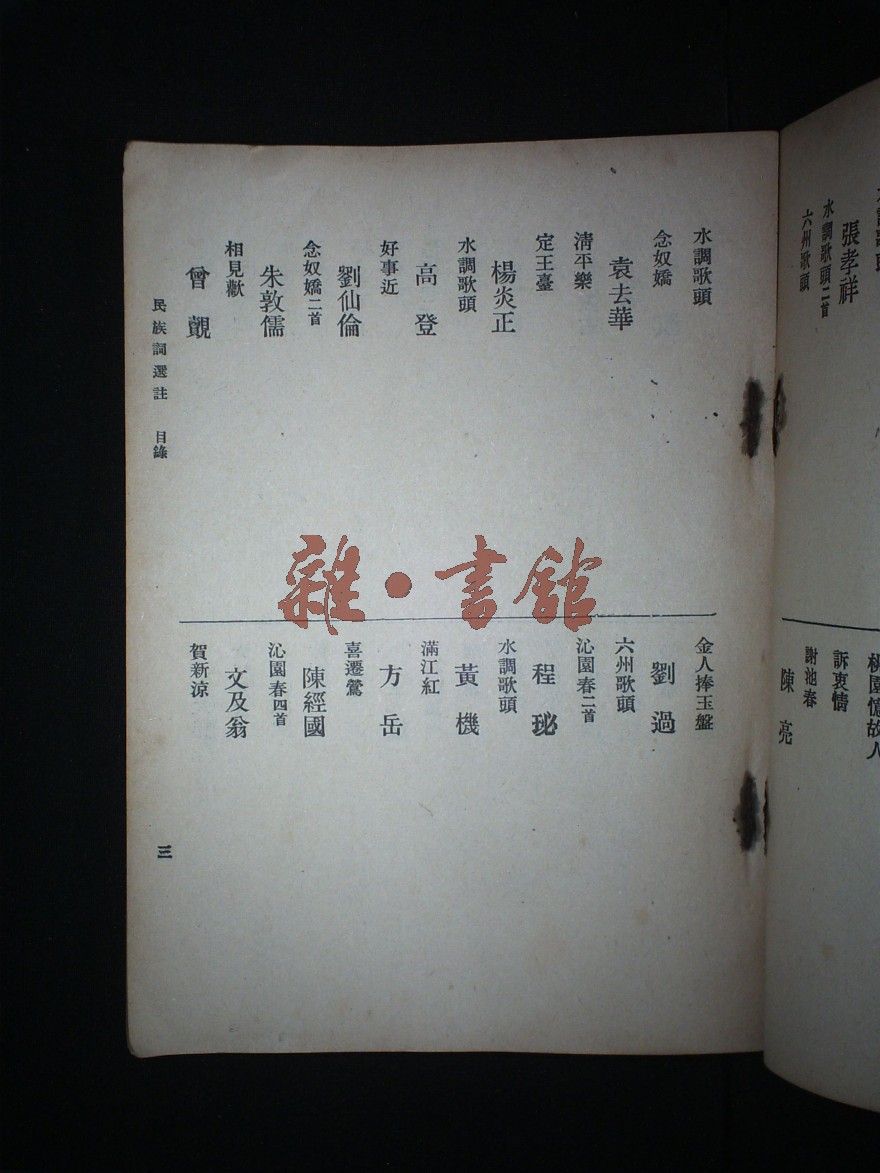 水調歌頭
張孝祥
水調歌頭二首
六州歌頭
桃園憶故人
訴衷情
謝池春
陳亮
水調歌頭
念奴嬌
袁去華
清平樂
定王臺
楊炎正
水調歌頭
高登
好事近
劉仙倫
念奴嬌二首
朱敦儒
相見歡
曾覿
金人捧玉盤
劉過
六州歌頭
沁園春二首
程珌
水調歌頭
黃機
滿江紅
方岳
喜遷鶯
陳經國
沁園春四首
文及翁
賀新涼
民族詞選註 目錄
三
雜·書館